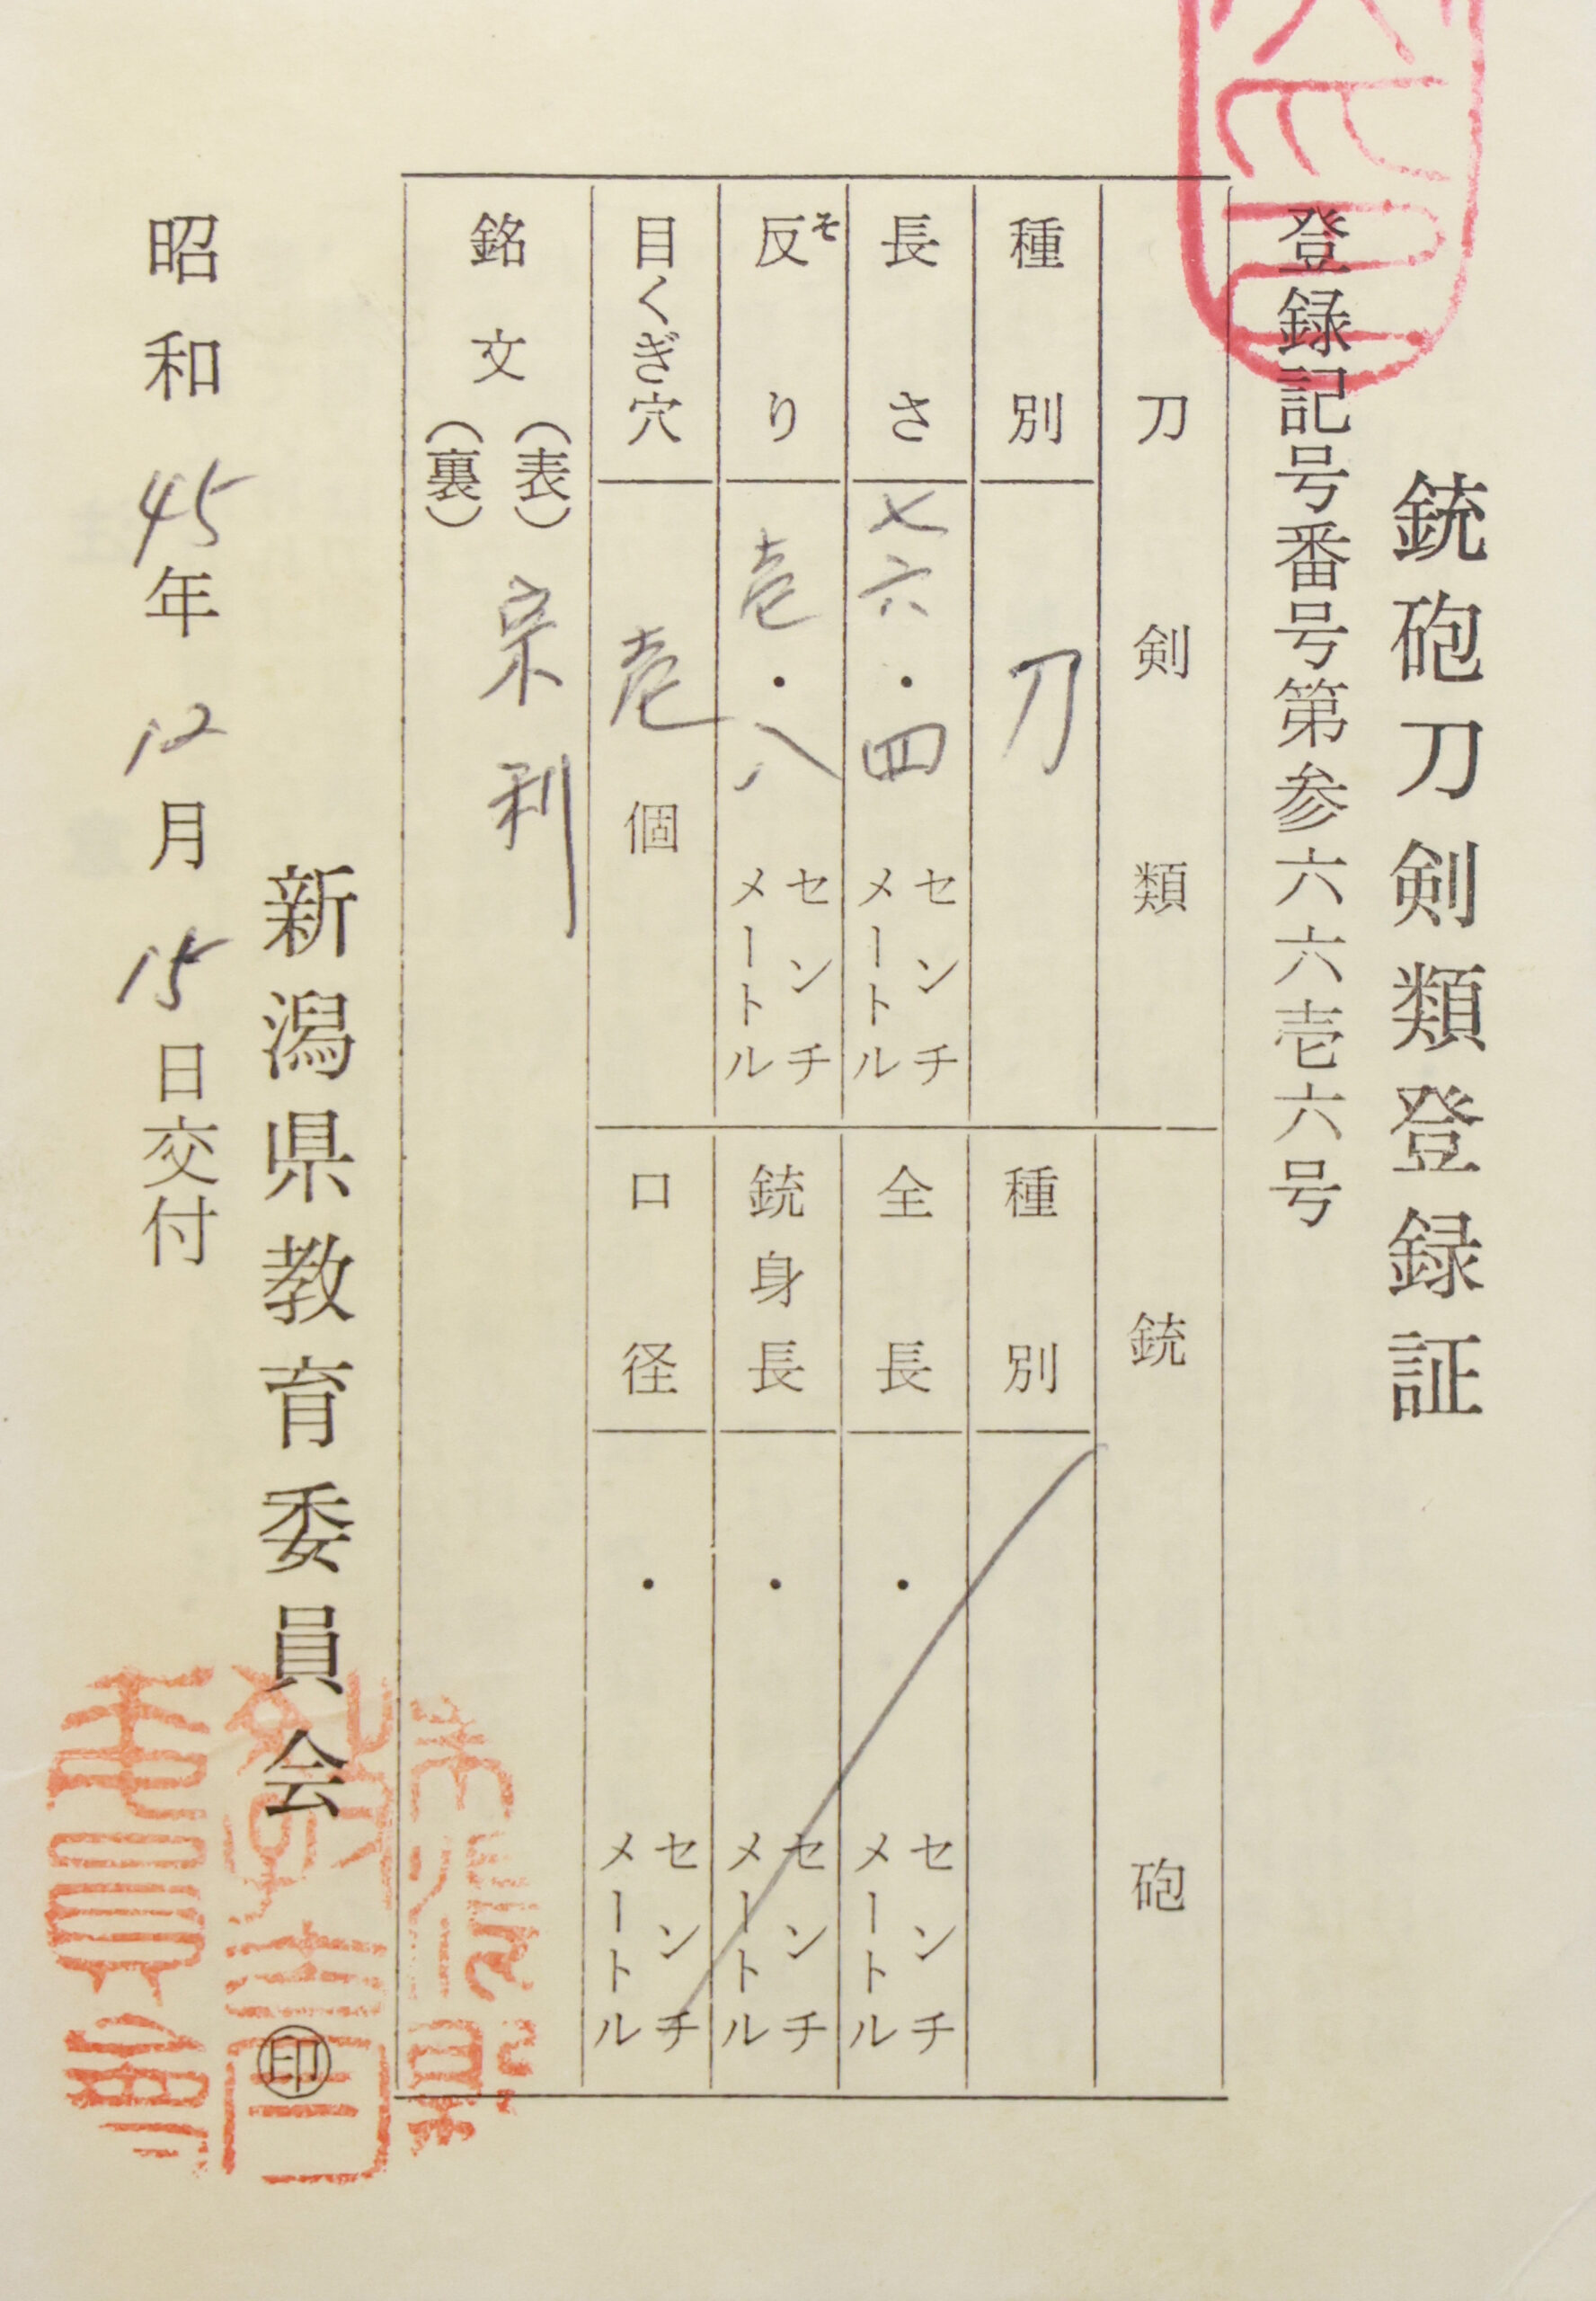 銃砲刀剣類登録証
登録記号番号第参六六壱六号
刀剣類
銃砲
種別 刀
種別
長さ 七六・四 センチメートル
全長 ・ センチメートル
反り 壱・八 センチメートル
そ
銃身長 ・ センチメートル
目くぎ穴 壱個
口径 ・ センチメートル
銘文
(表) 宗利
(裏)
新潟県教育委員会 印
昭和45年12月15日交付